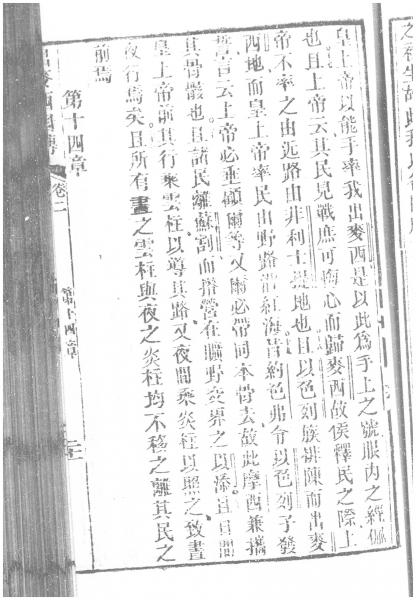 皇上帝以能手率我出麥西是以此爲手上之號眼內之經
也且上帝云其民見戰庶可悔心而歸麥西故侯釋民之際上
帝不率之由近路由非利士提地也且以色列族排陳而出麥
西地而皇上帝率民由野路沿紅海昔約色弗令以色列子發
誓言云上帝必垂顧爾等又爾必帶同本骨去故此摩西兼攜
其骨骸也且諸民離蘇割而搭營在曠野交界之以添且日間
皇上帝前其行乘雲柱以導其路又夜間乘炎柱以照之致晝
夜行焉矣且所有晝之雲柱與夜之炎柱均不移之離其民之
前焉
第十四章
卷二
第十四章